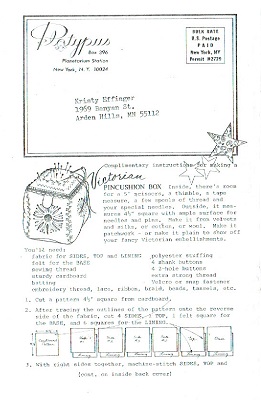 Polypus
Box 396
Planetarium Station
New York, N.Y. 10024
BULK RATE
U.S. Postage
PAID
New York, NY
Permit #2729
Kristy Effinger
3969 Banyan St.
Arden Hills, MN 55112
Complimentary instructions for making a
Victorian
PINCUSHION BOX Inside, there's room
for a 5" scissors, a thimble, a tape
measure, a few spools of thread and
your special needles. Outside, it mea-
sures 4½" square with ample surface for
needles and pins. Make it from velvets
and silks, or cotton, or wool. Make it
patchwork - or make it plain to show off
your fancy Victorian embellishments.
You'll need:
fabric for SIDES, TOP and LINING
polyester stuffing
felt for the BASE
4 shank buttons
sewing thread
4 2-hole buttons
sturdy cardboard
extra strong thread
batting
Velcro or snap fastener
embroidery thread, lace, ribbon, braid, beads, tassels, etc.
1. Cut a pattern 4½" square from cardboard.
2. After tracing the outlines of the pattern onto the reverse
side of the fabric, cut 4 SIDES, 1 TOP, 1 felt square for
the BASE, and 6 squares for the LINING.
3. With right sides together, machine-stitch SIDES, TOP and
(cont. on inside back cover)